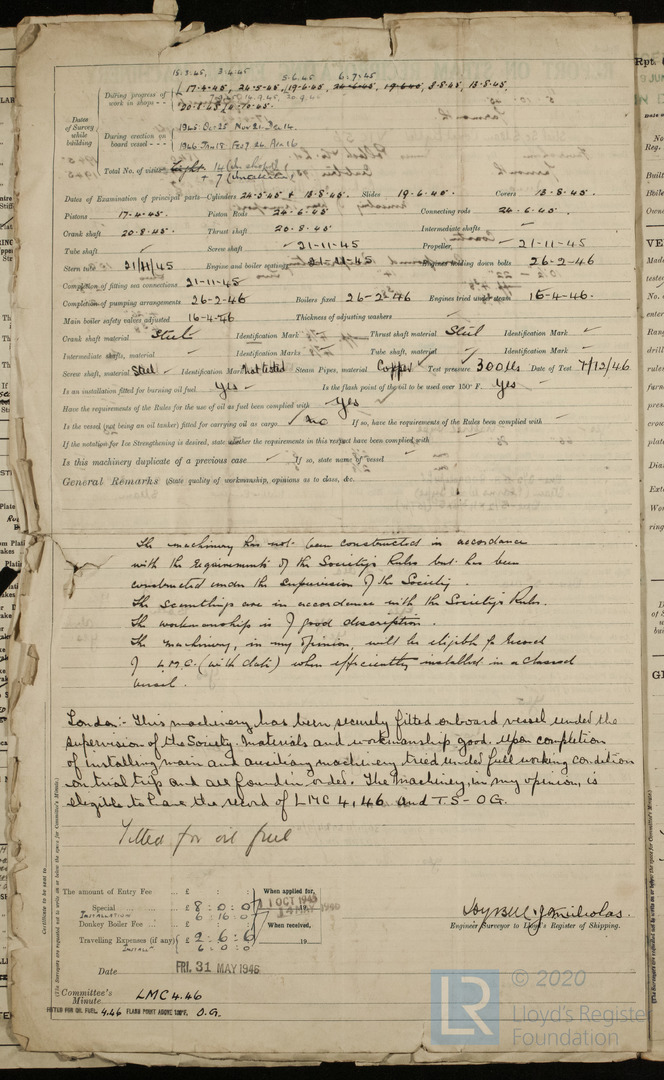 15.3.45, 3.4.45 5.6.45 6.7.45
During progress of work in shops - - 17-4-45, 24-5-45, 19-6-45, 24-6-45, 19-6-45, 8-8-45, 13-8-45,
20-8-45
Dates of Survey while building
During erection on board vessel - - - 1945 Oct 25 Nov 21 Dec 14
1946 Jan 18 Feb 7 26 Apr 16
Total No. of visits 14 (in shops)
+ 7
Dates of Examination of principal parts—Cylinders 24-5-45 + 13-8-45. Slides 19-6-45. Covers 13-8-45.
Pistons 17-4-45. Piston Rods 24-6-45. Connecting rods 24-6-45.
Crank shaft 20-8-45. Thrust shaft 20-8-45. Intermediate shafts
Tube shaft Screw shaft 21-11-45 Propeller 21-11-45
Stern tube 21/11/45 Engine and boiler seatings 21-11-45 Engines holding down bolts 26-2-46
Completion of fitting sea connections 21-11-45
Completion of pumping arrangements 26-2-46 Boilers fixed 26-2-46 Engines tried under steam 16-4-46.
Main boiler safety valves adjusted 16-4-46 Thickness of adjusting washers
Crank shaft material Steel Identification Mark Thrust shaft material Steel Identification Mark
Intermediate shafts, material Identification Marks Tube shaft, material Identification Mark
Screw shaft, material Steel Identification Mark Not tested Steam Pipes, material Copper Test pressure 300 lbs Date of Test
Is an installation fitted for burning oil fuel Yes Is the flash point of the oil to be used over 150° F. Yes
Have the requirements of the Rules for the use of oil as fuel been complied with Yes
Is the vessel (not being an oil tanker) fitted for carrying oil as cargo no If so, have the requirements of the Rules been complied with
If the notation for Ice Strengthening is desired, state whether the requirements in this respect have been complied with
Is this machinery duplicate of a previous case If so, state name of vessel
General Remarks (State quality of workmanship, opinions as to class, &c.
The machinery has not been constructed in accordance
with the requirements of the Society's Rules but has been
constructed under the supervision of the Society.
The scantlings are in accordance with the Society's Rules.
The workmanship is of good description.
The machinery, in my opinion, will be eligible for record
of L.M.C. (with date) when efficiently installed in a classed
vessel.
London:- This machinery has been securely fitted onboard vessel under the
supervision of the Society. Materials and workmanship good. Upon completion
of installing main and auxiliary machinery tried under full working condition
on trial trip and all found in order. The Machinery, in my opinion, is
eligible to have the record of LMC 4,46 and T.S-OG.
Fitted for oil fuel
Certificate to be sent to
(The Surveyors are requested not to write on or below the space for Committee's Minute.)
The amount of Entry Fee .. £ : :
Special .. £ 8 : 0 : 0
Installation 6 : 16 : 0
Donkey Boiler Fee .. £ : :
Travelling Expenses (if any) £ 2 : 6 : 0
Install 6 : 0 : 0
When applied for,
1 OCT 1945
14 MAY 1946
When received,
19
Engineer Surveyor to Lloyd's Register of Shipping.
Date FRI. 31 MAY 1946
Committee's Minute LMC 4.46
FITTED FOR OIL FUEL 4.46 FLASH POINT ABOVE 150°F. O.G.
© 2020
LR
Lloyd's Register
Foundation